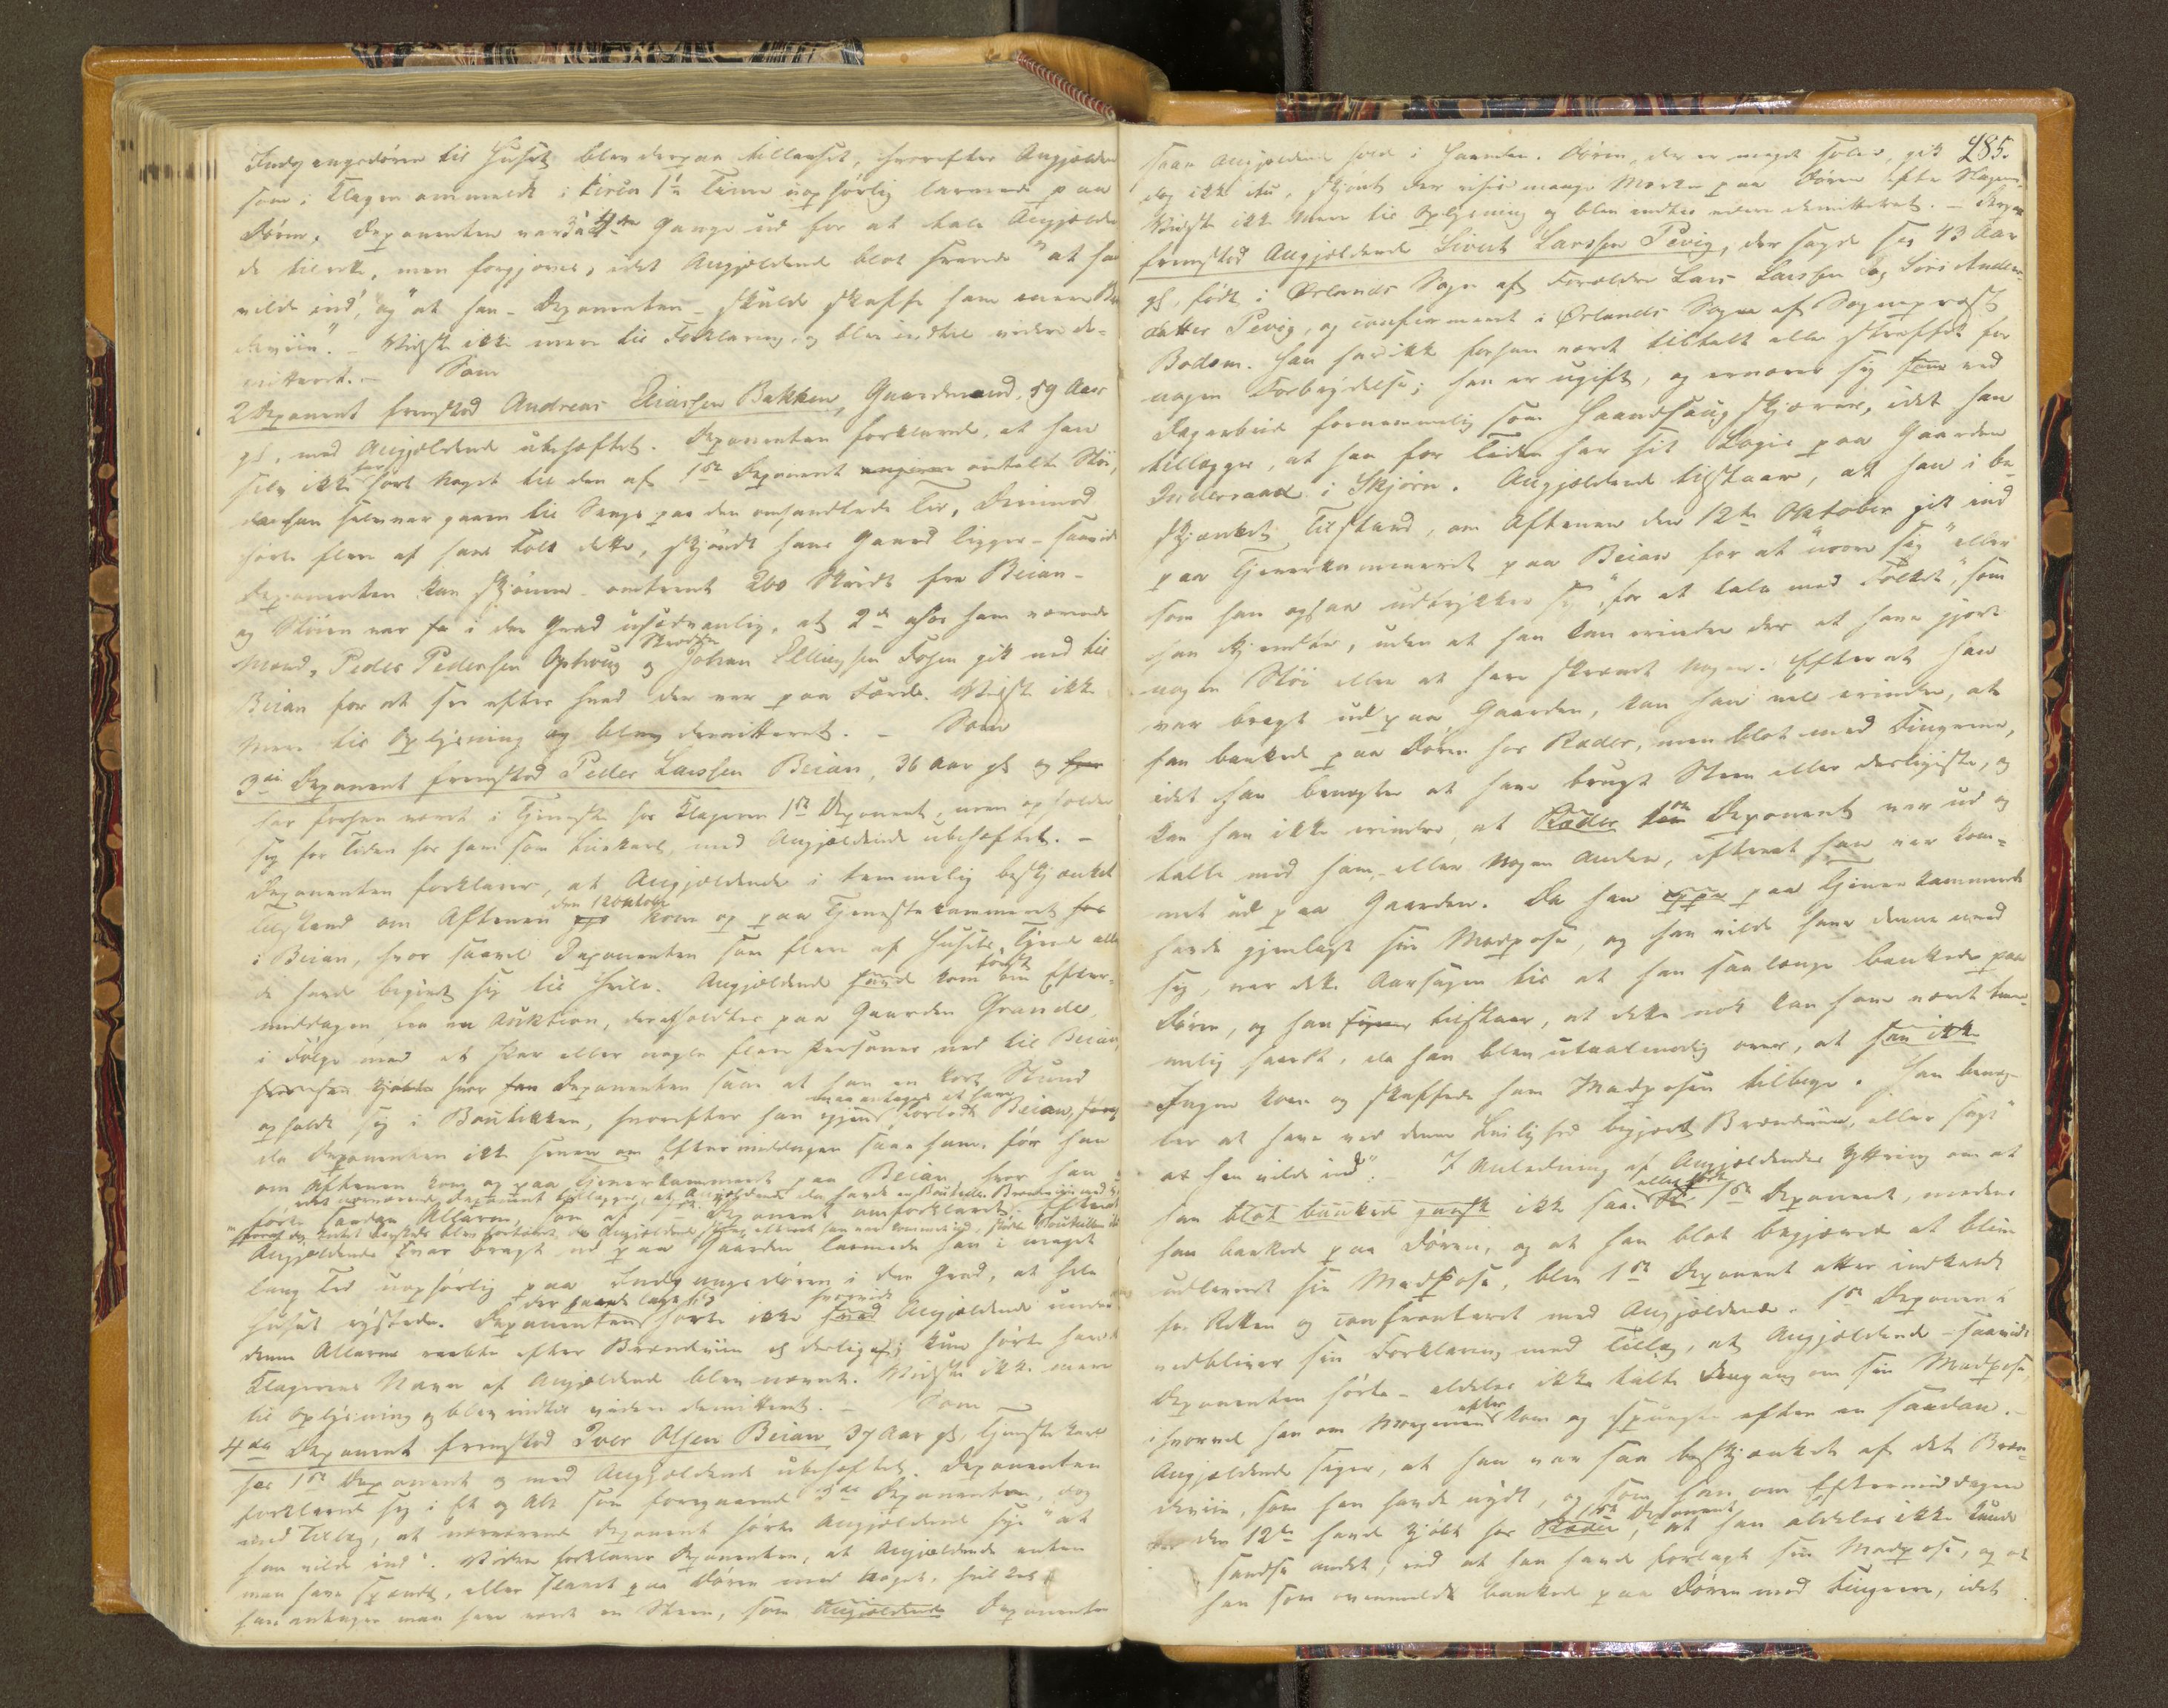 Indgangsdøren til Huset blev derpaa tillaaset, hvorefter Angjældende
som i Klagen ommeldt i circa 1½ Time uophørlig larmede paa
Døren. Deponenten var 3 à 4 Gange ud for at tale Angjældende
de tilrette, men forgjæves, idet Angjældende blot svarede "at han
vilde ind", og "at han - Deponenten - skulde skaffe ham mere Bræn
deviin". - Vidste ikke mere til Forklaring og blev indtil videre de-
mitteret. - Som
2 Deponent fremstod Andreas Eliassen Bakken, Gaardmand, 59 Aar
gl, med Angjældende ubeslægtet. Deponenten forklarede, at han
selv ikke har hørt Noget til den af 1ste Deponent omtalte Støi,
da han selv var gaaen til Sengs paa den omhandlede Tid. Derimod
hørte flere af hans Folk dette, skjøndt hans Gaard ligger - saavidt
Deponenten kan skjønne - omtrent 200 Skridt fra Beian -
og Støien var i den Grad usædvanlig, at 2de hos ham værende
Mænd, Peder Pedersen Ophaug og Johan Ellingsen Fosen gik ned til
Beian for at se efter hvad der var paa Færde. Vidste ikke
Mere til Oplysning og blev demitteret. - Som
3die Deponent fremstod Peder Larssen Beian, 36 Aar gl og
har forhen været i Tjeneste hos Klageren 1ste Deponent, men opholder
sig for Tiden hos ham som Leiekarl, med Angjældende ubeslægtet. -
Deponenten forklarer, at Angjældende i temmelig beskjænket
Tilstand om Aftenen den 12 Oktober kom op paa Tjenestekammeret
i Beian, hvor saavel Deponenten som flere af Husets Tjenere alle
de havde begivet sig til Hvile. Angjældende kom først om Efter-
middagen fra en Auktion, der afholdtes paa Gaarden Grande
i Følge med et Par eller nogle flere Personer ned til Beian,
hvor Deponenten saae at han en kort Stund
opholdt sig i Boutikken, hvorefter han igjen forlod Beian,
da Deponenten ikke senere om Eftermiddagen saae ham, før han
om Aftenen kom op paa Tjenerkammeret paa Beian, hvor han
førte saadan Allarm, som af 1ste Deponent omforklaret. Efterat
Angjældende var bragt ud paa Gaarden larmede han i meget
lang Tid uophørlig paa Indgangsdøren i den Grad, at hele
Huset rystede. Deponenten der havde lagt sig hørte ikke hvorvidt Angjældende under
denne Allarm raabte efter Brændeviin eller desligest; kun hørte han
Klagerens Navn af Angjældende blev nævnt. Vidste ikke mere
til Oplysning og blev indtil videre demitteret. - Som
4de Deponent fremstod Iver Olsen Beian 37 Aar gl, Tjenestekarl
hos 1ste Deponent og med Angjældende ubeslægtet. Deponenten
forklarede sig i Et og Alt som foregaaende 3die Deponenten, dog
med Tillæg, at nærværende Deponent hørte Angjældende sige "at
han vilde ind". Videre forklarer Deponenten, at Angjældende enten
maa have spændt, eller slaaet paa Døren med Noget, hvilket
han antager maa have været en Steen, som Deponenten
285.
saae Angjældende hold i Haanden. Døren, der er meget solid, gik
dog ikke itu, skjønt der vises mange Mærker paa Døren efter Slagene.
Vidste ikke Mere til Oplysning og blev indtil videre demitteret. - Derpaa
fremstod Angjældende Sivert Larssen Tevig, der sagde sig 43 Aar
gl, født i Ørlands Sogn af Forældre Lars Larssen og Siri Anders-
datter Tevig, og confirmeret i Ørlands Sogn af Sogneprest
Bodom. Han har ikke forhen været tiltalt eller straffet for
nogen Forbrydelse; han er ugift, og ernærer sig ved
Dagarbeide fornemmelig som Haandsaugskjærer, idet han
tillægger, at han for Tiden har sit Logis paa Gaarden
Indersaad i Skjørn. Angjældende tilstaar, at han i be-
skjænket Tilstand, om Aftenen den 12te Oktober gik ind
paa Tjenerkammeret paa Beian for at "more sig" eller
som han ogsaa udtrykker sig, "for at tale med Folket", som
han kjendte, uden at han kan erindre der at have gjort
nogen Støi eller at have skræmt Nogen. Efterat han
var bragt ud paa Gaarden, kan han vel erindre, at
han bankede paa Døren hos Ræder, men blot med Fingrene,
idet han benægter at have brugt Steen eller desligeste, og
kan han ikke erindre, at 1ste Deponent var ud og
talte med ham, eller Nogen Anden, efterat han var kom-
met ud paa Gaarden. Da han paa Tjenerkammeret
havde gjenlagt sin Madpose, og han vilde have denne med
sig, var dette Aarsagen til at han saa længe bankede paa
Døren, og han tilstaar, at dette nok kan have været tem-
melig haardt, da han blev utaalmodig over, at
Ingen kom og skaffede ham Madposen tilbage. Han benæg-
ter at have ved denne Leilighed begjært Brændeviin, eller sagt "
at han vilde ind". I Anledning af Angjældendes Yttring om at
han ikke saae eller hørte 1ste Deponent, medens
han bankede paa Døren, og at han blot begjærede at blive
udleveret sin Madpose, blev 1ste Deponent atter indkaldt
for Retten og confronteret med Angjældende. 1ste Deponent
vedbliver sin Forklaring med Tillæg, at Angjældende - saavidt
Deponenten hørte - aldeles ikke talte dengang om sin Madpose,
hvorvel han om Morgenen efter kom og spurgte efter en saadan. -
Angjældende siger, at han var saa beskjænket af det Bræn-
deviin, som han havde nydt, og som han om Eftermiddagen
den 12te havde kjøbt hos 1ste Deponent, at han aldeles ikke kunde
sandse andet, end at han havde forlagt sin Madpose, og at
han som ovenmeldt bankede paa Døren med Fingrene, idet